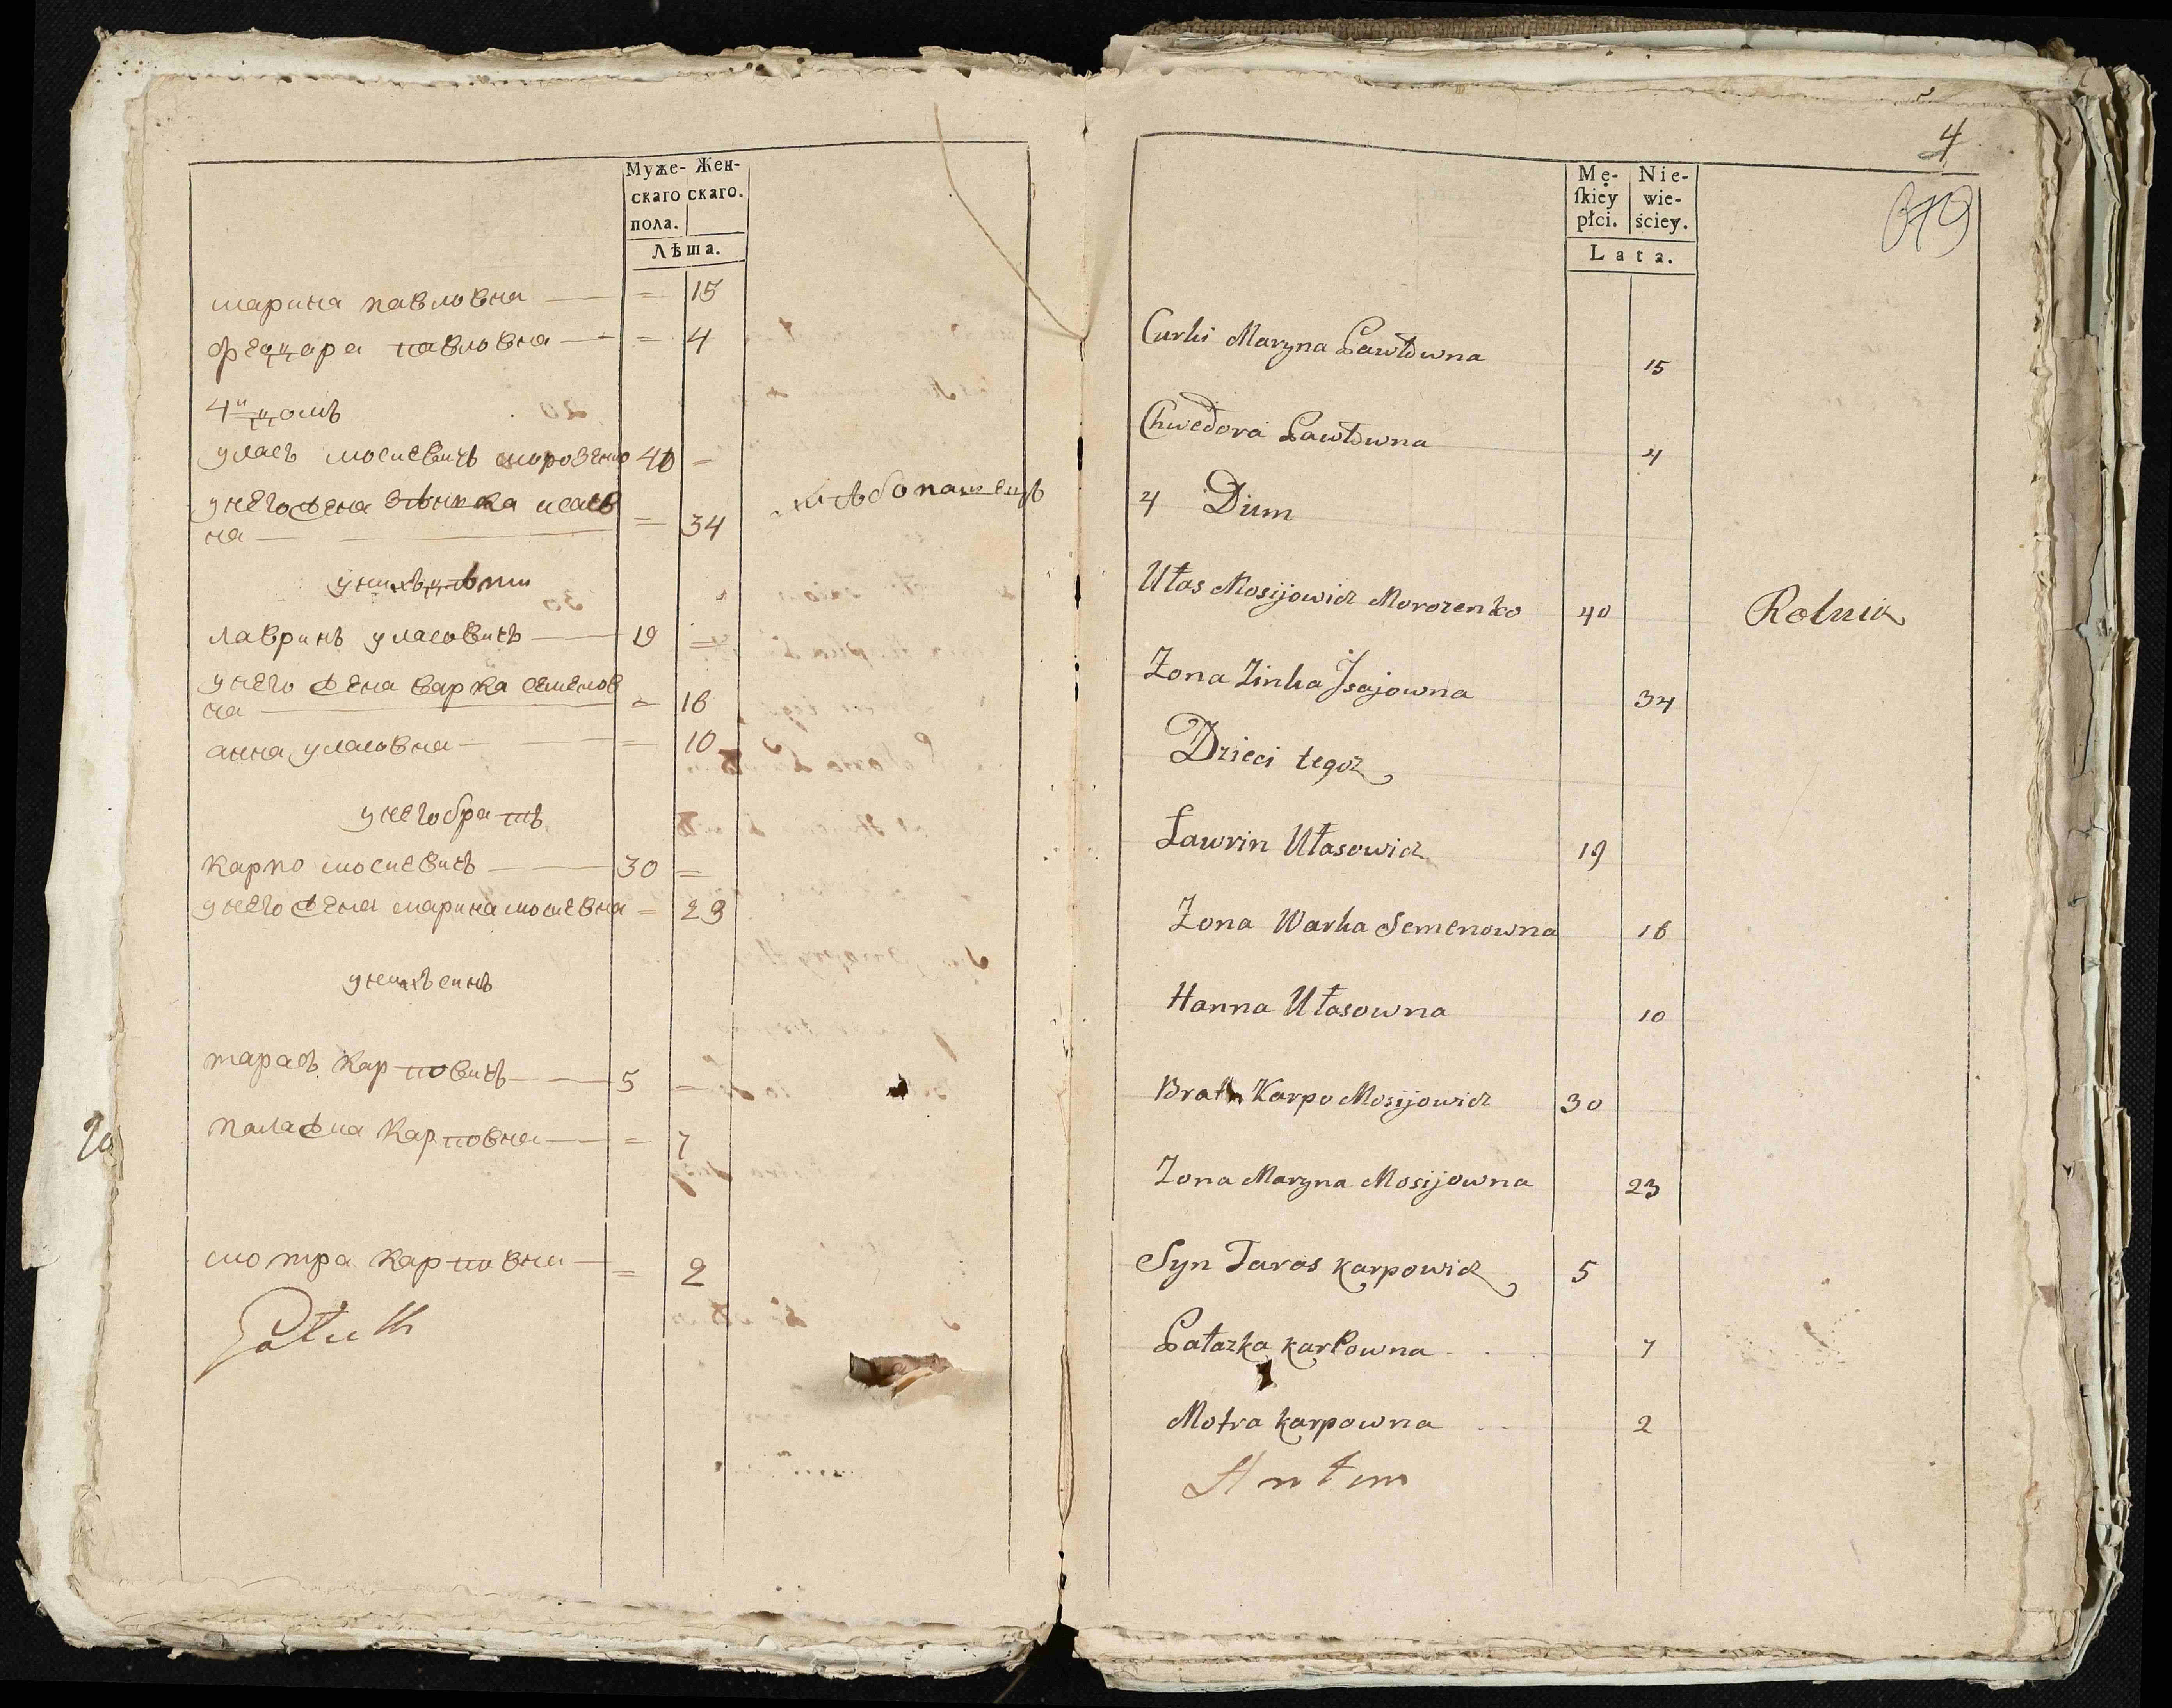 Муже- Жен-
скаго скаго.
пола.
Лѣта.
марина павловна — = 15
феддора павловна — = 4
4й домъ
уласъ мосиевичъ морозенко 40 =
унего жена зѣнька исаев
на = 34 хлѣбопашецъ
унихъ дѣти
лавринъ уласовичъ — 19 =
унего жена варка семенов
на = 16
анна уласовна — = 10
унего братъ
карпо мосиевичъ — 30 =
унего жена марина мосиевна = 23
унихъ синъ
тарасъ карповичъ — 5 =
палажка карповна — = 7
мотра карповна — = 2
20
4
Mę- Nie-
ſkiey wie-
płci. ściey.
Lata.
Curki Maryna Pawłowna 15
Chwedora Pawłowna 4
4 Dum
Ułas Mosijowicz Morozenko 40 Rolnik
Zona Zinka Jsajowna 34
Dzieci tegoz
Lawrin Ułasowicz 19
Zona Warka Semenowna 16
Hanna Ułasowna 10
Brat Karpo Mosijowicz 30
Zona Maryna Mosijowna 23
Syn Taras Karpowicz 5
Pałazka Karpowna 7
Motra Karpowna 2